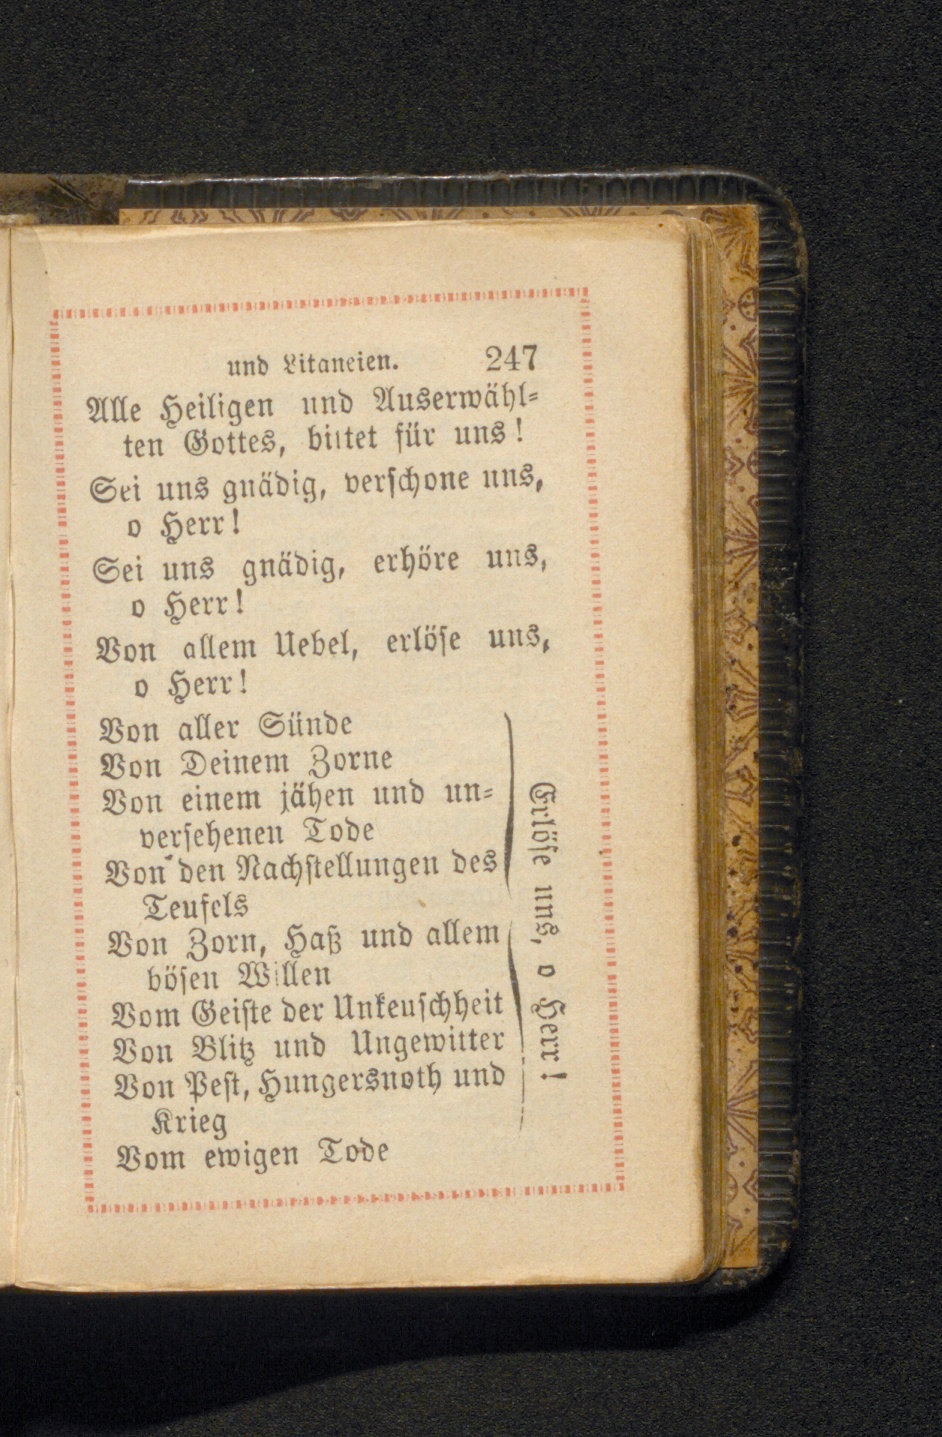 und Litaneien. 247
Alle Heiligen und Auserwähl-
ten Gottes, bittet für uns!
Sei uns gnädig, verschone uns,
o Herr!
Sei uns gnädig, erhöre uns,
o Herr!
Von allem Uebel, erlöse uns,
o Herr!
Von aller Sünde
Von Deinem Zorne
Von einem jähen und un-
versehenen Tode
Von den Nachstellungen des
Teufels
Von Zorn, Haß und allem
bösen Willen
Vom Geiste der Unkeuschheit
Von Blitz und Ungewitter
Von Pest, Hungersnoth und
Krieg
Vom ewigen Tode
Erlöse uns, o Herr!